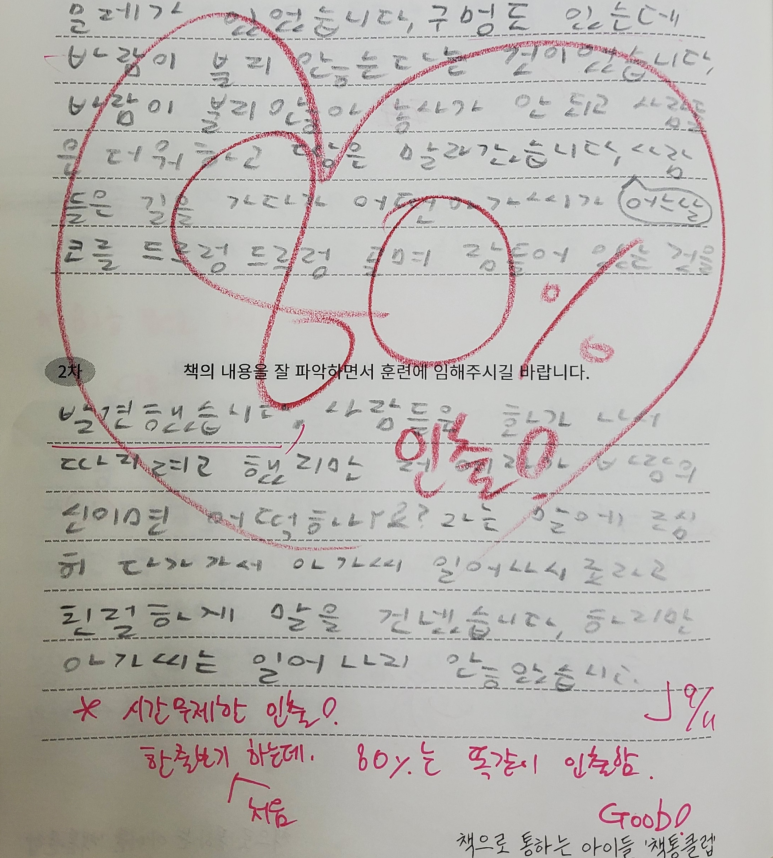 물레가 있었습니다, 구멍도 있는데
바람이 불리 않는다는 건이었습니다,
바람이 불리않아 농사가 안 되고 사람들
은 더워하고 땅은 말라갔습니다, 사람
들은 길을 가다가 어떤 아가씨가 어느날
코를 드르렁 드르렁 골며 잠들어 있는 걸을
80%
2차 책의 내용을 잘 파악하면서 훈련에 임해주시길 바랍니다.
발견했습니다, 사람들은 화가 나서
따리려고 했리만 바람의
인출!
신이면 어떡하나요? 라는 말에 조심
히 다가가서 아가씨 일어나시죠라고
친절하게 말을 건넸습니다, 하리만
아가씨는 일어나리 않았습니다.
* 시간무제한 인출!
9/11
한줄보기 하는데. 80%는 똑같이 인출함.
처음
Good!
책으로 통하는 아이들 '책통클럽